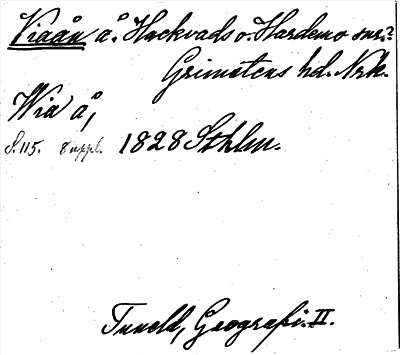 Viaån å. Hackvads o. Hardemo snr?
Grimstens hd. Nrk.
Wia å,
S. 115. 8 uppl. 1828 Sthlm.
Tuneld, Geografi. II.